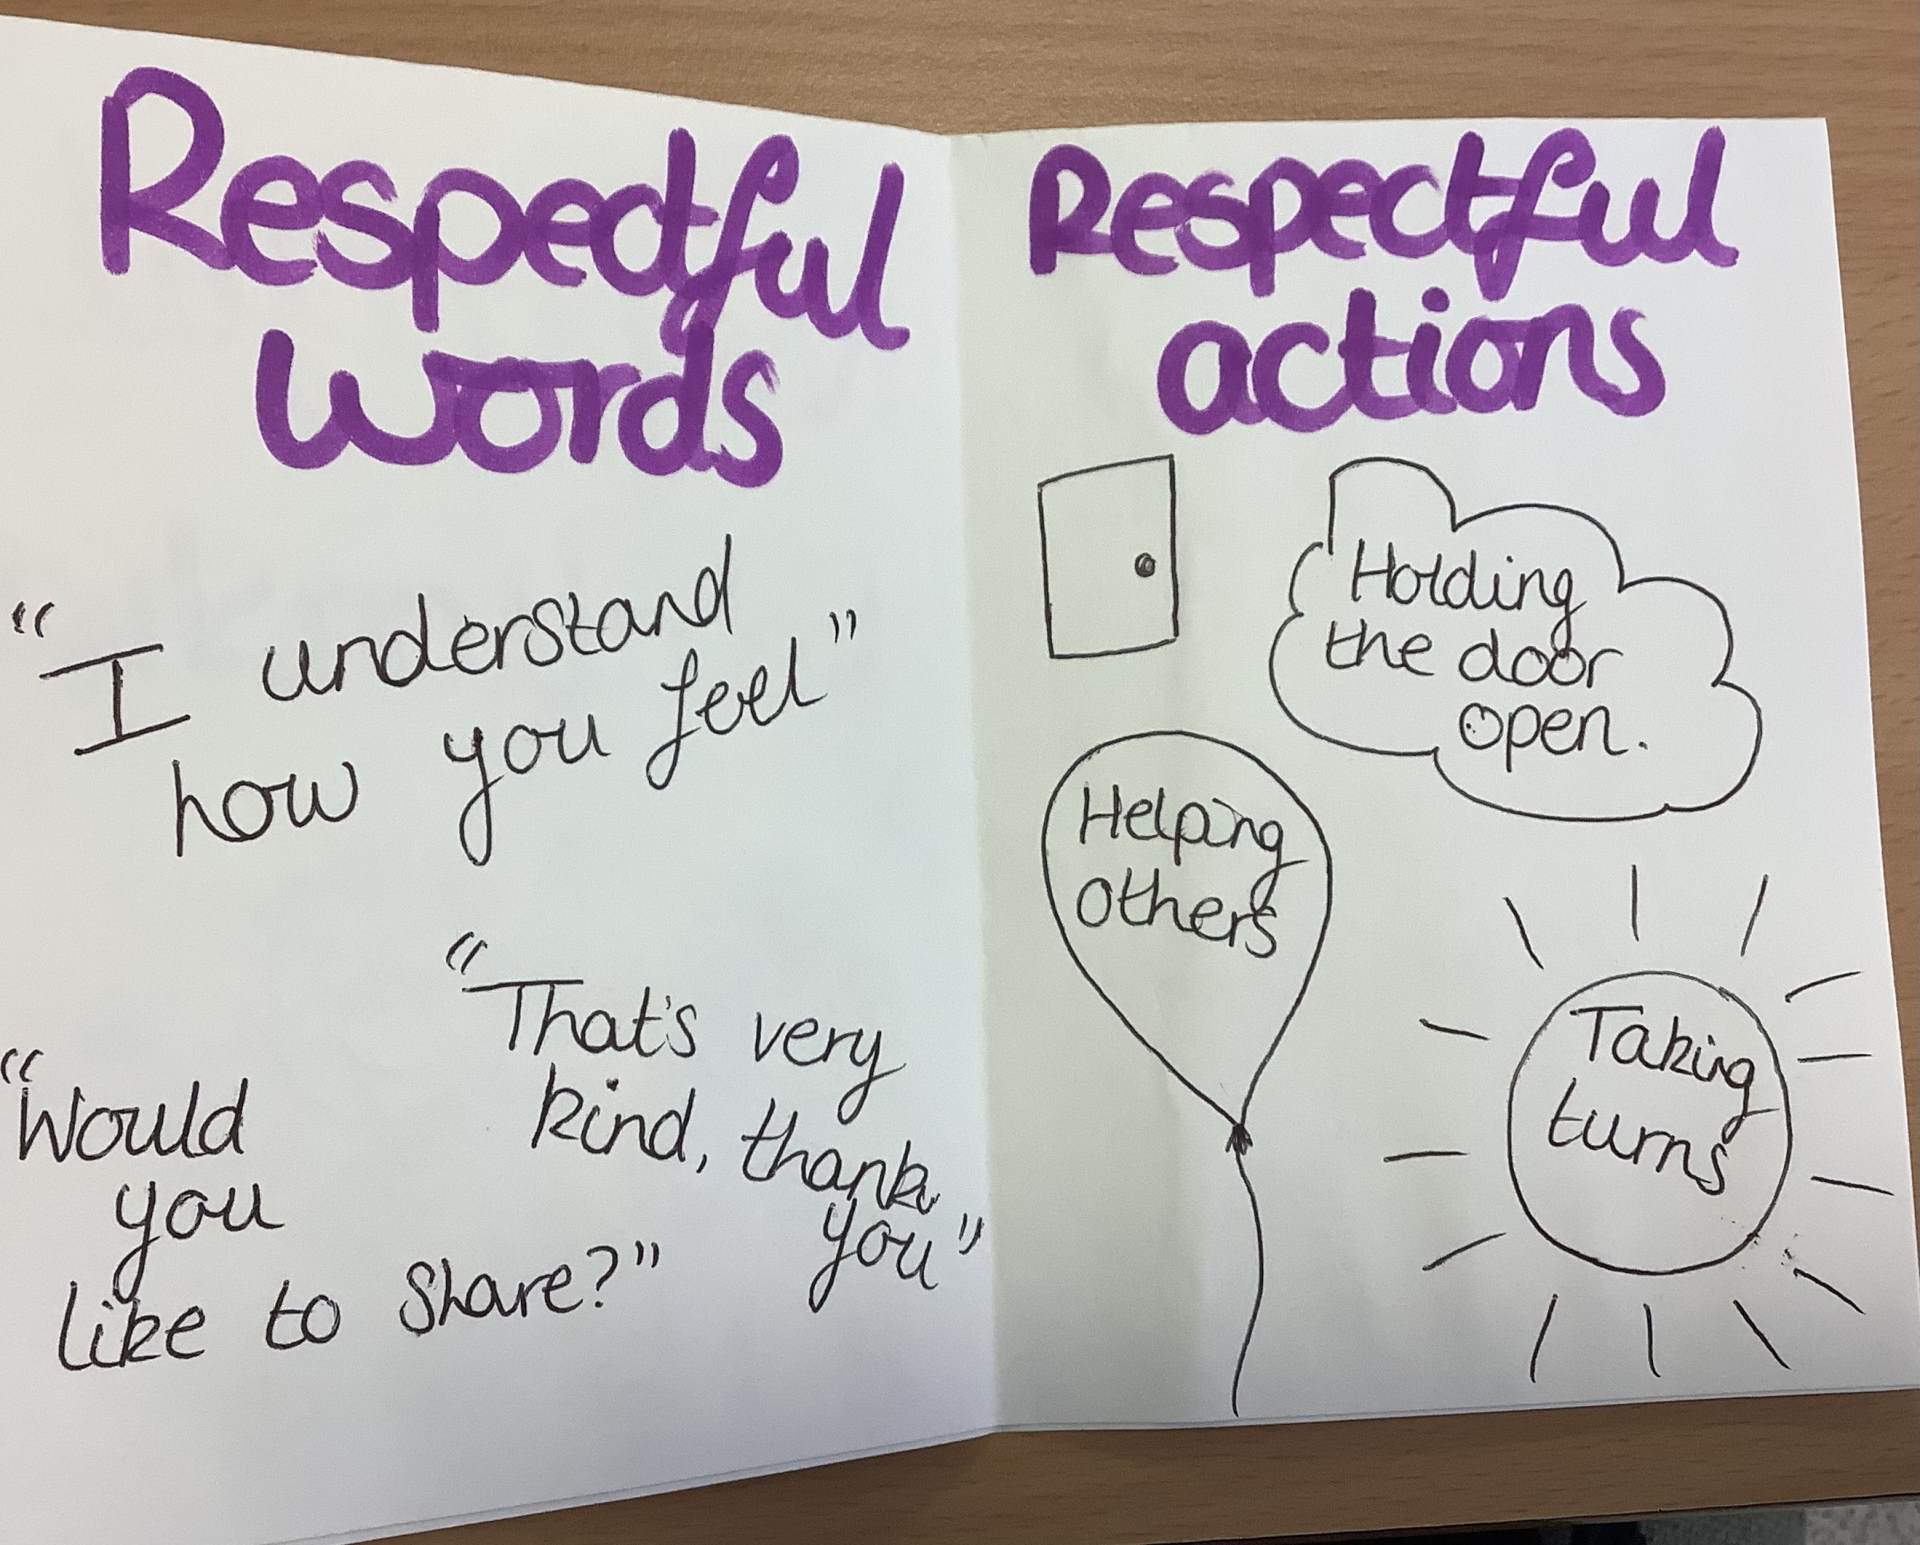 Respectful
words
"I understand
how you feel"
"That's very
kind, thank
you"
"Would
you
like to share?"
Respectful
actions
Holding
the door
open.
Helping
others
Taking
turns